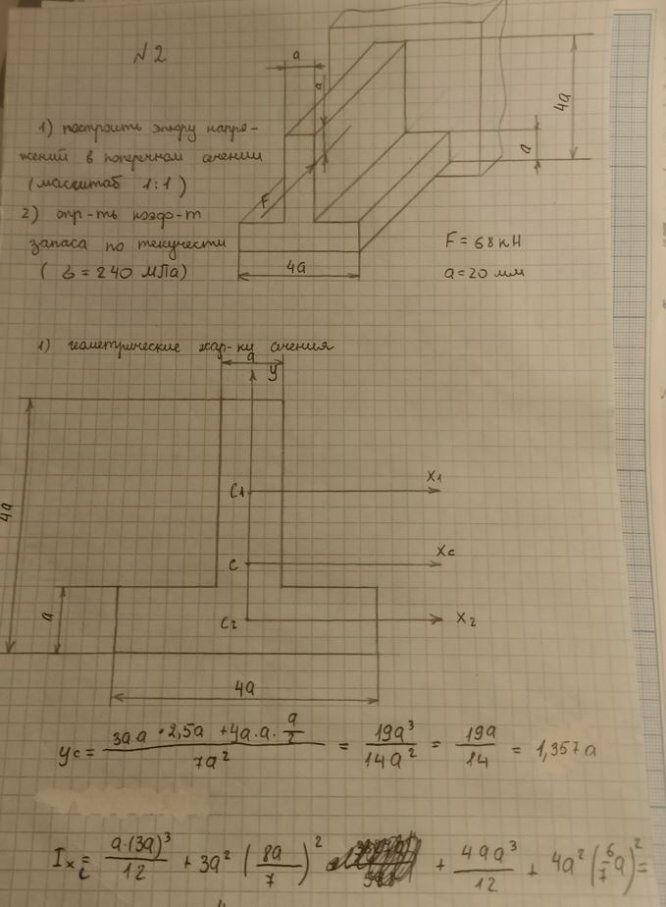 N2
a
a
1) построить эпюру напря-
жений в поперечном сечении
(масштаб 1:1)
2) опр-ть коэф-т
запаса по текучести
(б = 240 МПа)
F
4a
4a
a
F = 68 кН
a = 20 мм
1) геометрические хар-ки сечения
a
y
C1
x1
4a
C
xc
a
C2
x2
4a
yc = (3a·a·2,5a + 4a·a·a/2) / 7a² = 19a³/14a² = 19a/14 = 1,357a
Ixc = a·(3a)³/12 + 3a² (8a/7)² + 4aa³/12 + 4a² (6/7 a)² =